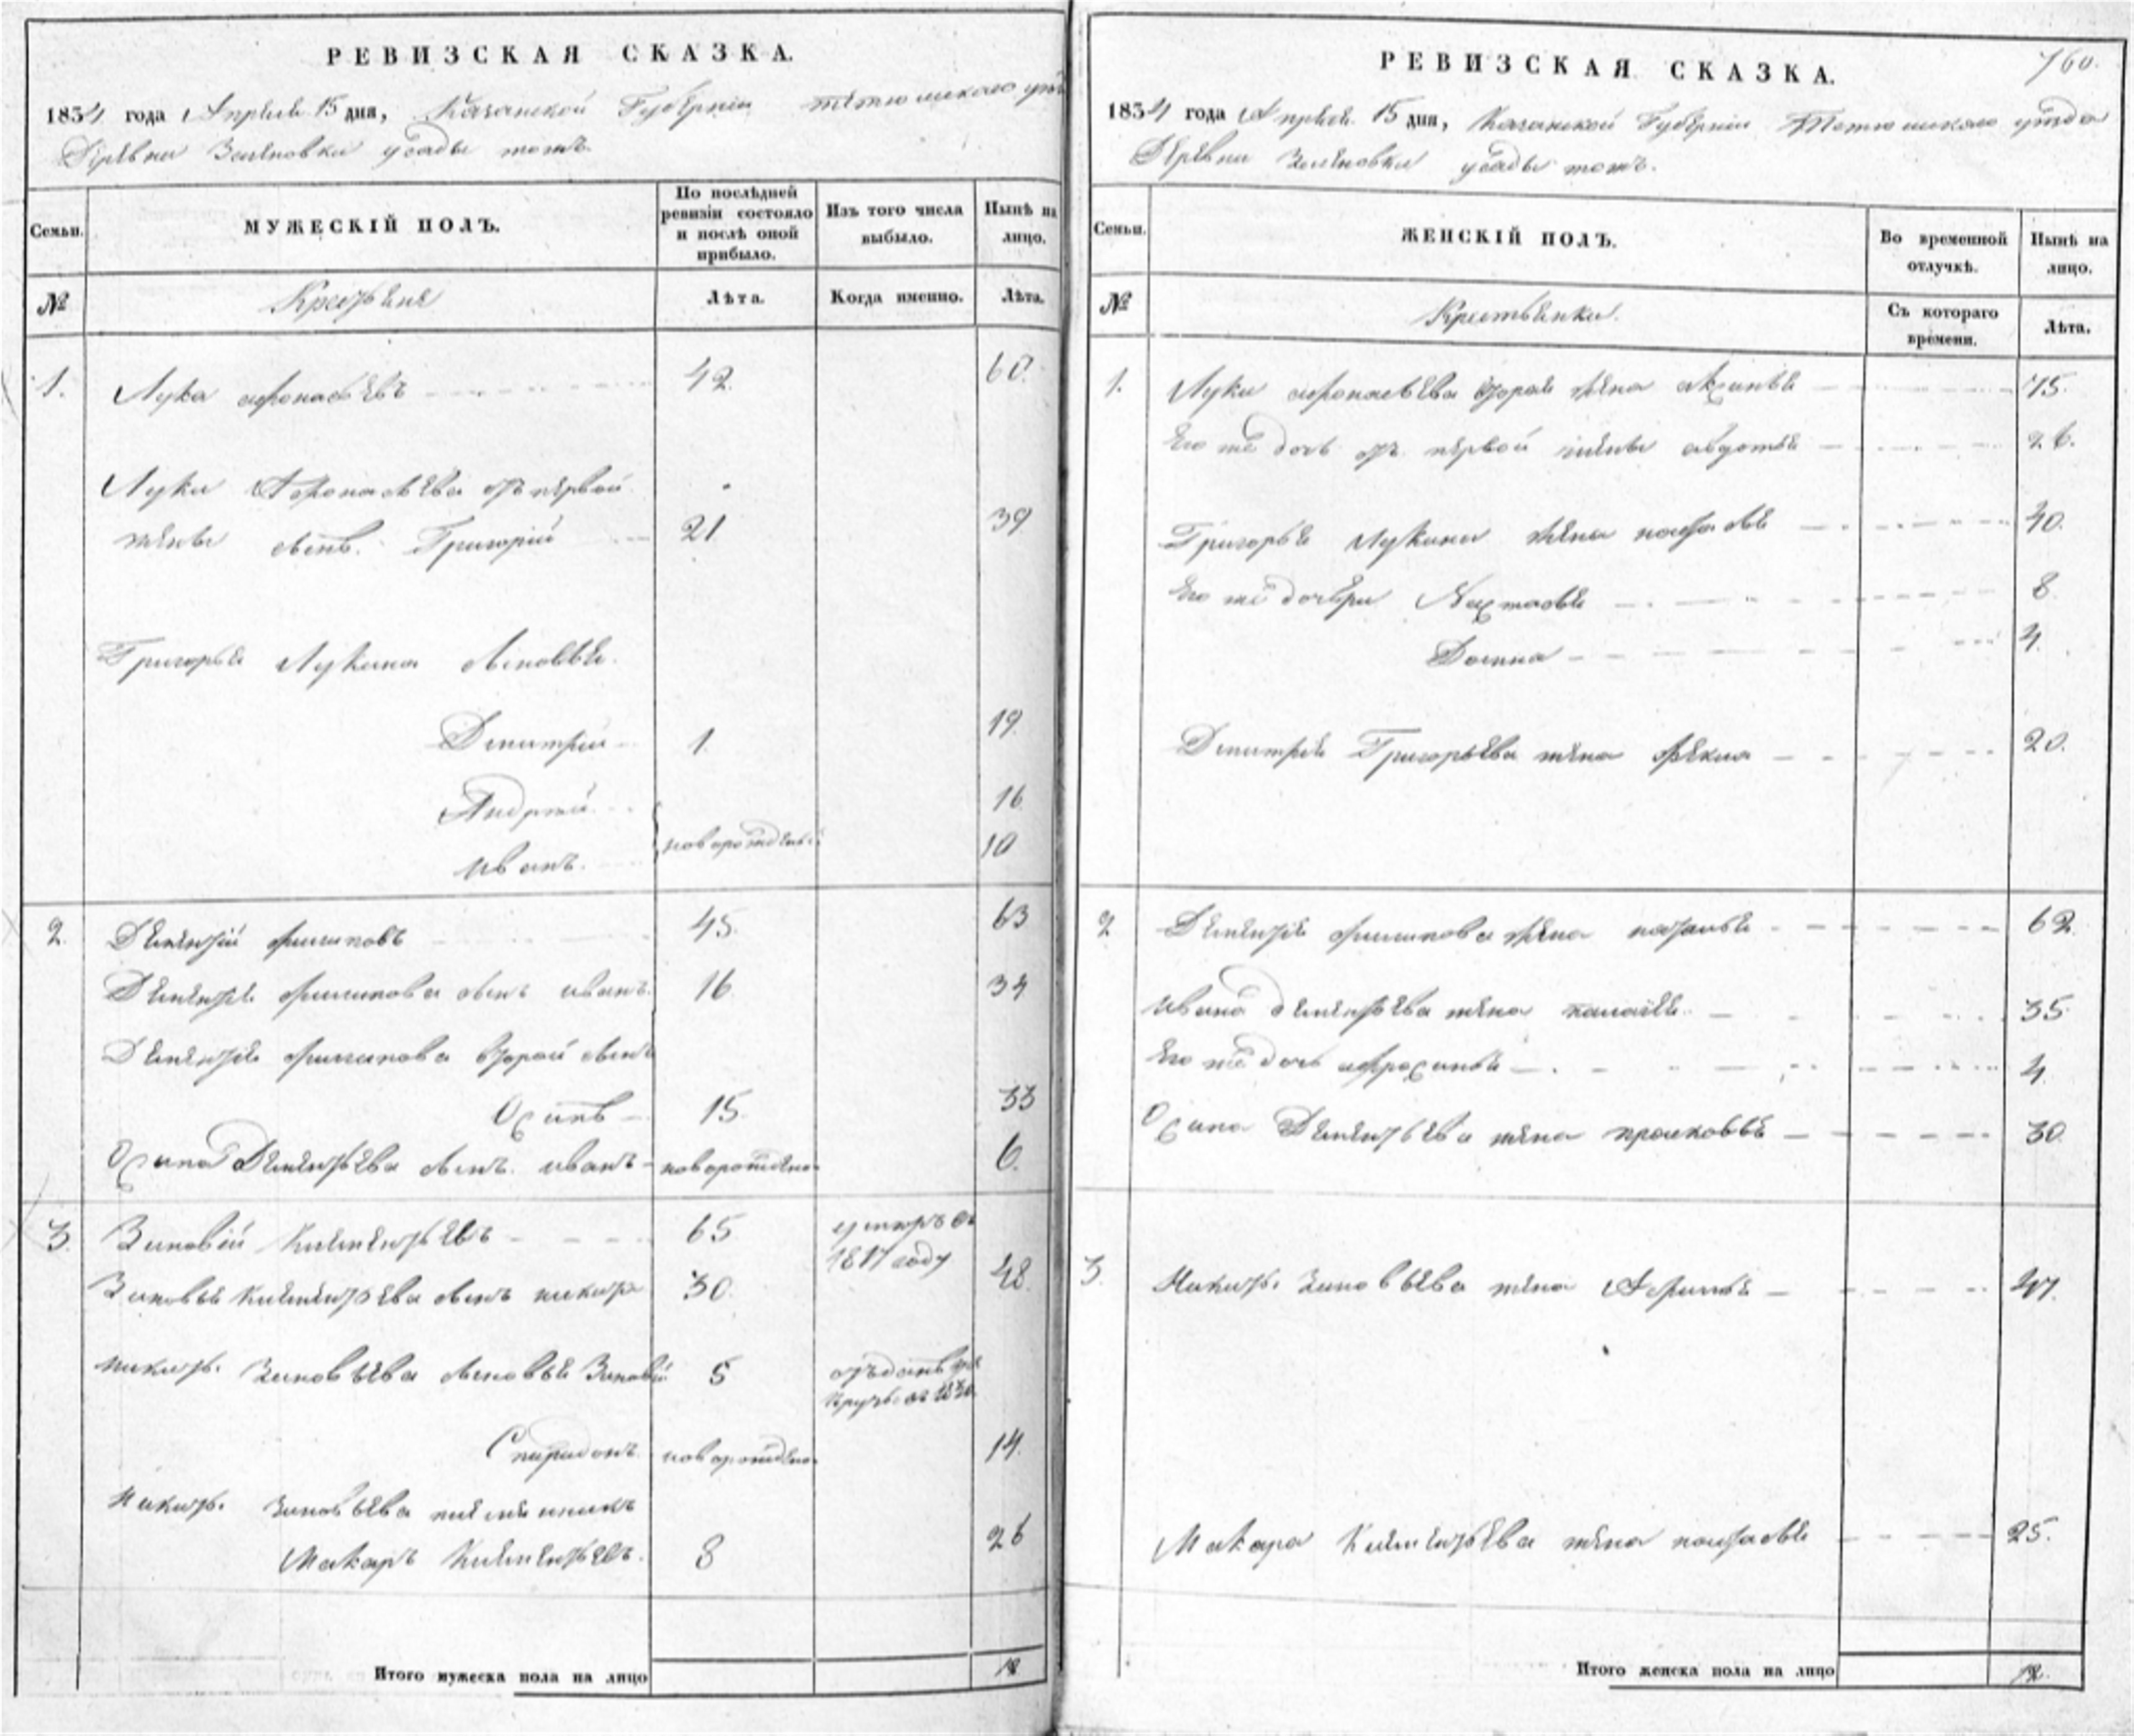 РЕВИЗСКАЯ СКАЗКА.
1834 года Апреля 15 дня, Казанской Губернии Тетюшскаго
Деревни Зеленовки усады тожъ
Семьи.
МУЖЕСКІЙ ПОЛЪ.
По послѣдней ревизіи состояло и послѣ оной прибыло.
Изъ того числа выбыло.
Нынѣ на лицо.
№
Крестьяне
Лѣта.
Когда именно.
Лѣта.
1. Лука афонасьевъ 42. 60.
Луки Афонасьева отъ первой
жены сынъ Григорій 21 39
Григорья Лукина сыновья.
Дмитрій 1. 19.
Андрей 16.
иванъ. новорожденные 10
2. Дементій филиповъ 45. 63
Дементья филипова сынъ иванъ. 16. 34
Дементья филипова второй сынъ
Осипъ 15. 33
Осипа Дементьева сынъ иванъ новорожден. 6.
3. Зиновій Климентьевъ 65 умеръ въ
1817 году
Зиновья Климентьева сынъ никита 30. 48.
никиты Зиновьева сыновья Зиновій 5 отданъ въ
рекруты въ
Спиридонъ новорожден. 14.
Никиты Зиновьева племянникъ
Макаръ Климентьевъ. 8 26
Итого мужеска пола на лицо 12.
760.
РЕВИЗСКАЯ СКАЗКА.
1834 года Апреля 15 дня, Казанской Губернии Тетюшскаго уѣзда
Деревни Зеленовки усады тожъ.
Семьи.
ЖЕНСКІЙ ПОЛЪ.
Во временной отлучкѣ.
Нынѣ на лицо.
№
Крестьянки.
Съ котораго времени.
Лѣта.
1. Луки афонасьева вторая жена аксинья 75.
Его же дочь отъ первой жены авдотья 26.
Григорья Лукина жена наталья 40.
Его же дочери Настасья 8.
Домна 4.
Дмитрия Григорьева жена фекла 20.
2 Дементья филипова жена наталья 62.
ивана дементьева жена 35.
Его же дочь афросинья 4.
Осипа Дементьева жена прасковья 30.
3. Никиты Зиновьева жена Афимья 47.
Макара Климентьева жена наталья 25.
Итого женска пола на лицо 12.